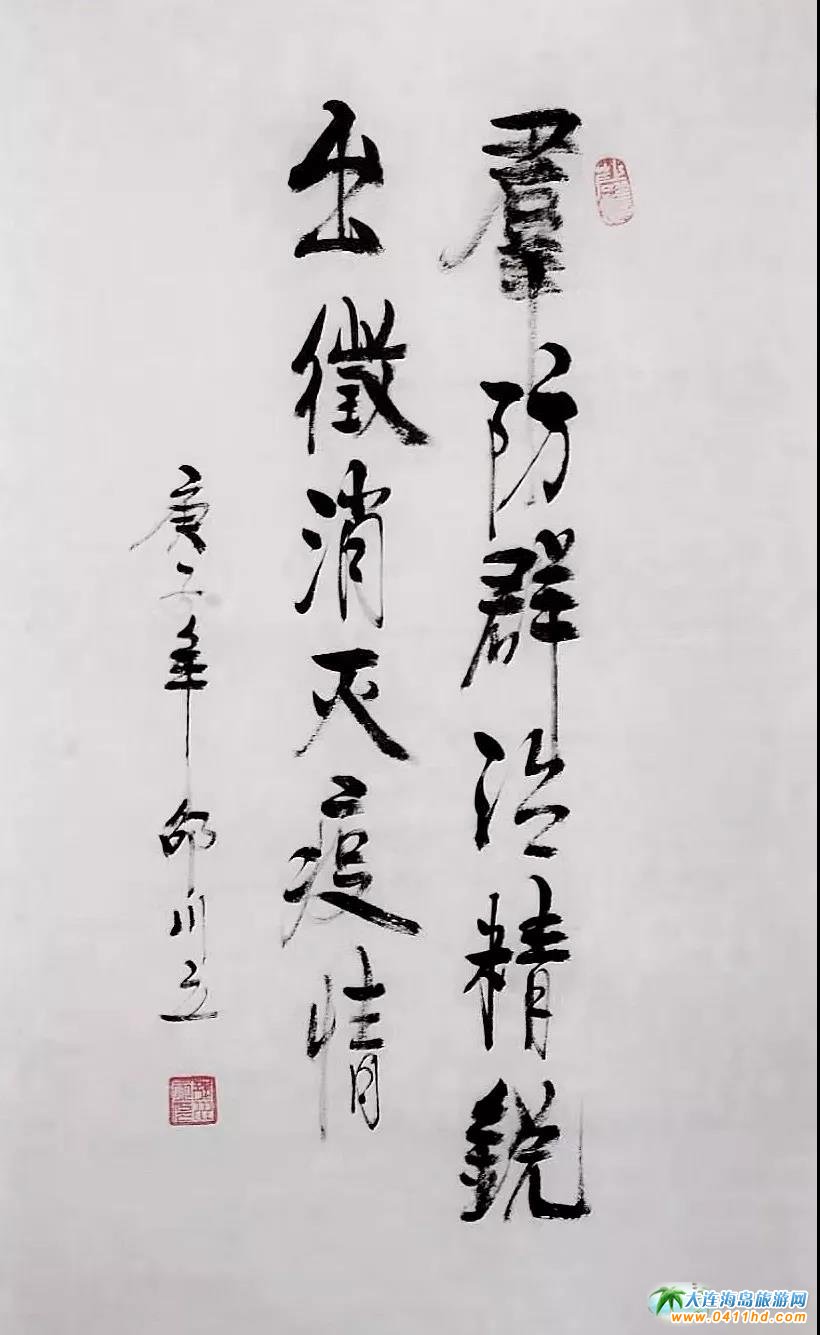 羣防群治精銳
出徵消灭疫情
庚子年 邵川立
大连海岛旅游网
www.0411hd.com